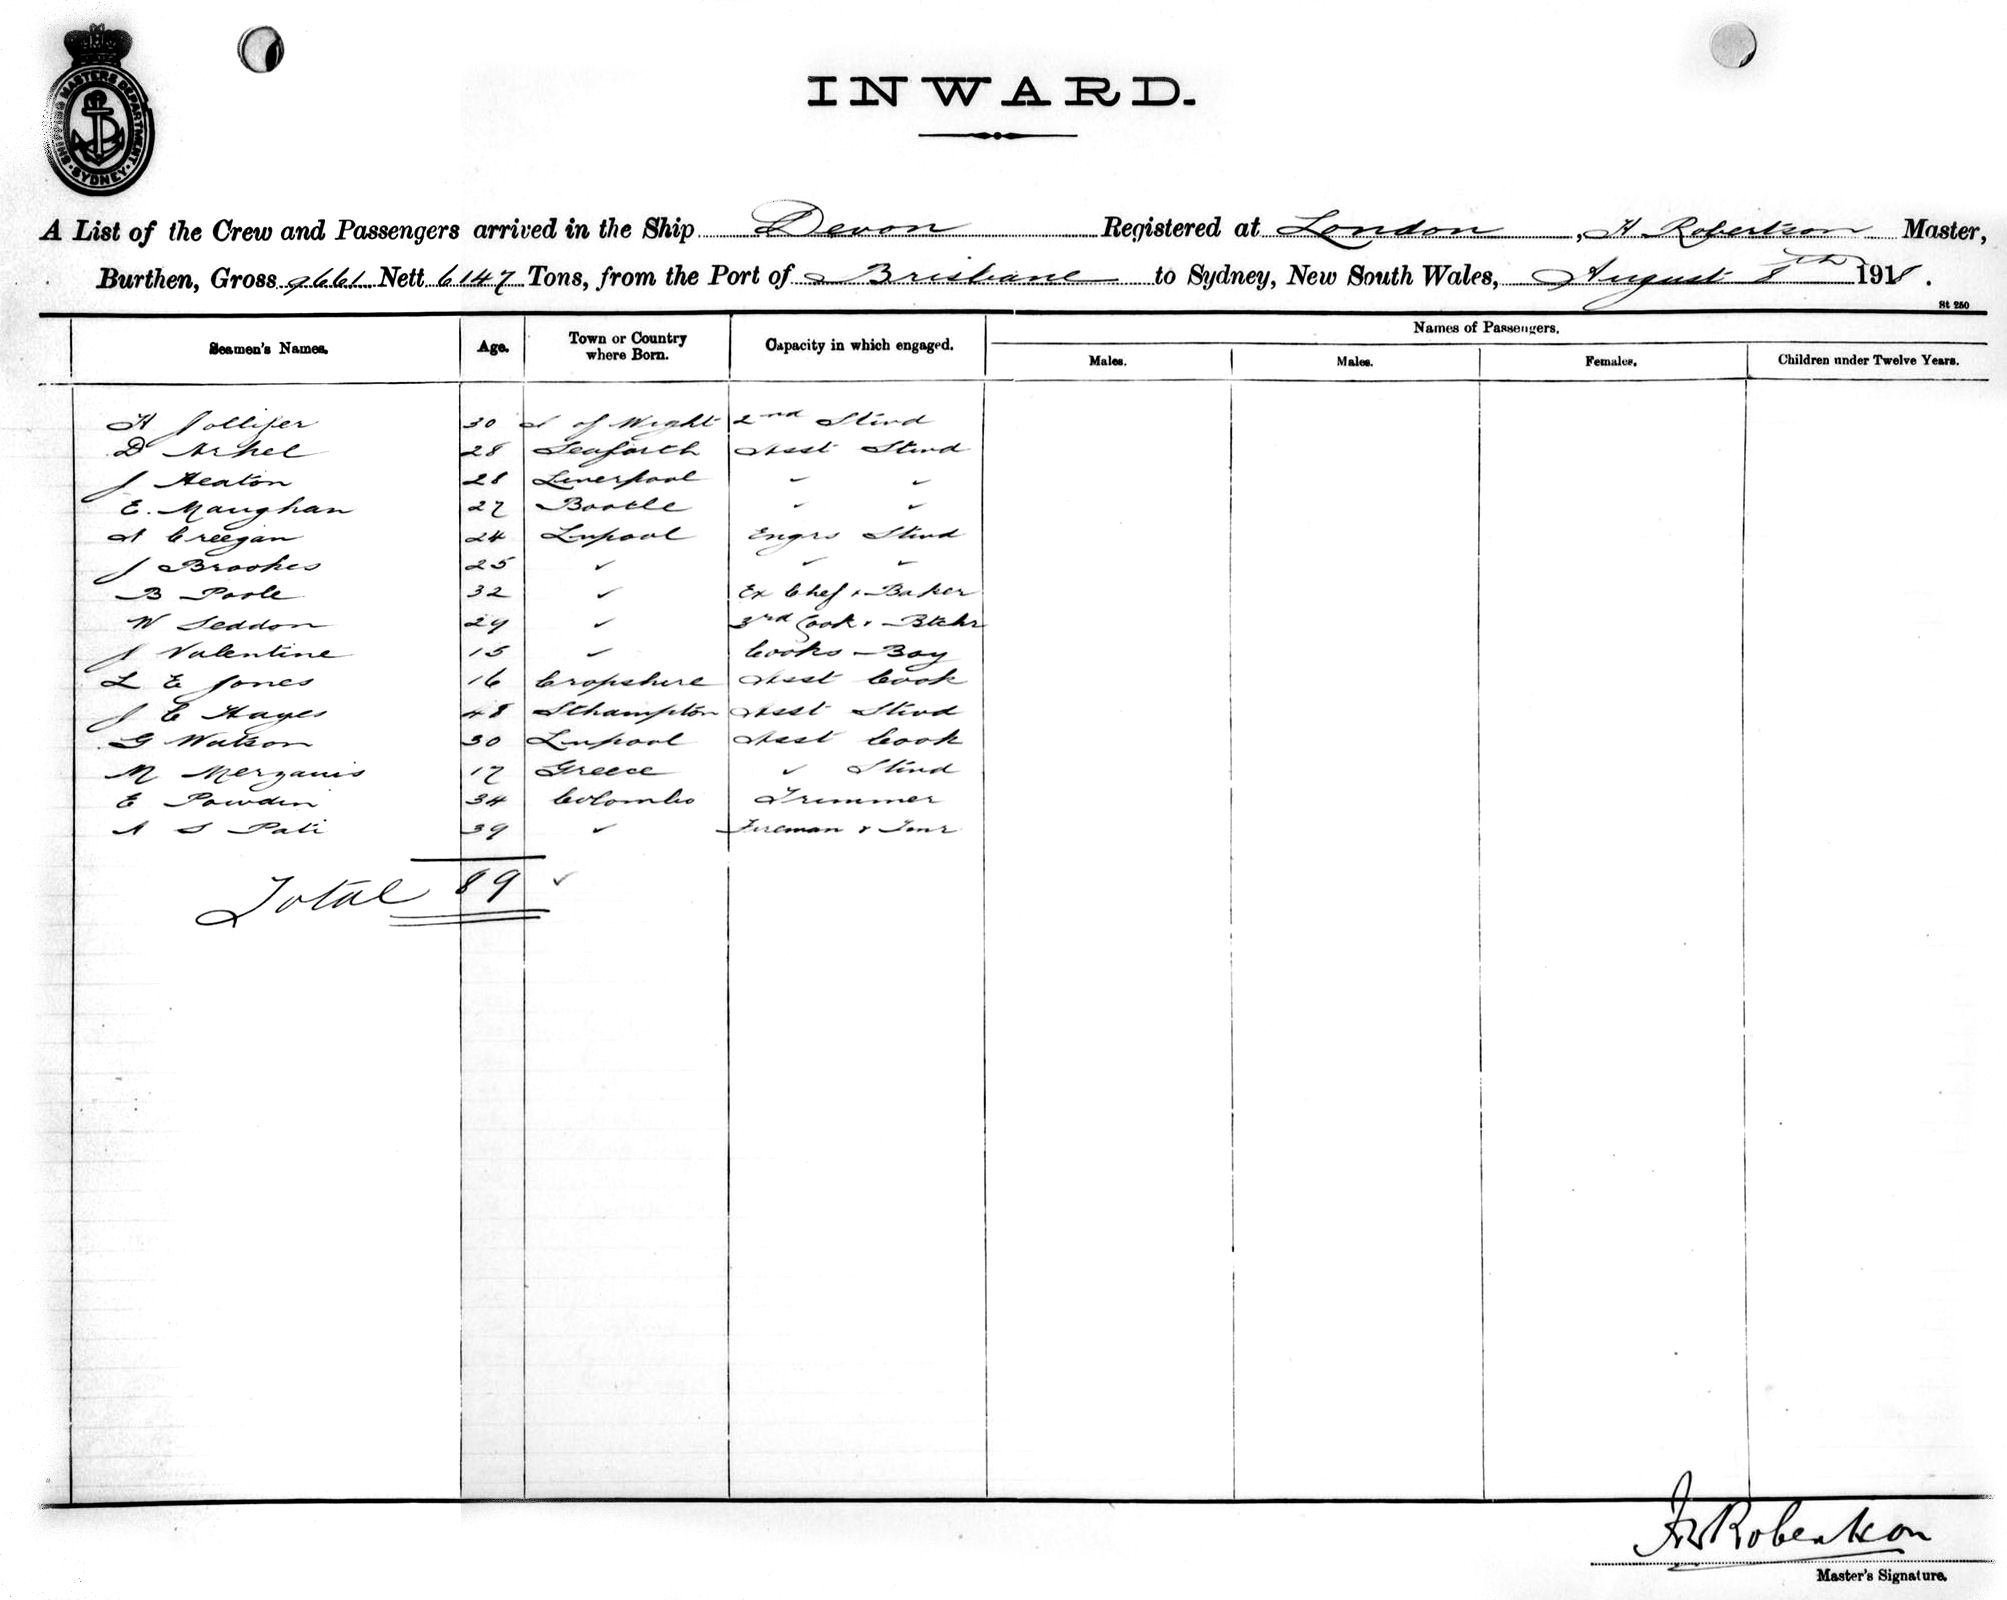 SHIPPING MASTERS DEPARTMENT
SYDNEY
INWARD.
A List of the Crew and Passengers arrived in the Ship Devon Registered at London, H Robertson Master,
Burthen, Gross 9661 Nett 6147 Tons, from the Port of Brisbane to Sydney, New South Wales, August 8th 1918.
St 250
Seamen's Names. Age. Town or Country where Born. Capacity in which engaged. Names of Passengers.
Males. Males. Females. Children under Twelve Years.
H Jolliffer 30 I of Wight 2nd Stwd
D Arkel 28 Seaforth Asst Stwd
J Heaton 28 Liverpool " "
E. Maughan 27 Bootle " "
A Creegan 24 Lvpool Engrs Stwd
J Brookes 25 " " "
B Poole 32 " Ex Chef & Baker
W Seddon 29 " 3rd Cook & Btchr
J Valentine 15 " Cooks Boy
L E Jones 16 Cropshire Asst Cook
J C Hayes 48 Sthampton Asst Stwd
G Watson 30 Lvpool Asst Cook
M Merzanis 17 Greece " Stwd
E Powdin 34 Colombo Trimmer
A S Pati 39 " Fireman & Tmr
Total 89 ✓
H Robertson
Master's Signature.